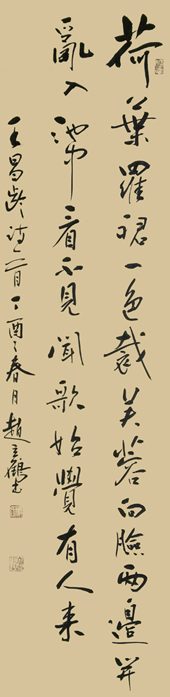 荷葉羅裙一色裁芙蓉向臉兩邊開
亂入池中看不見聞歌始覺有人来
王昌齡詩一首丁酉之春月趙書